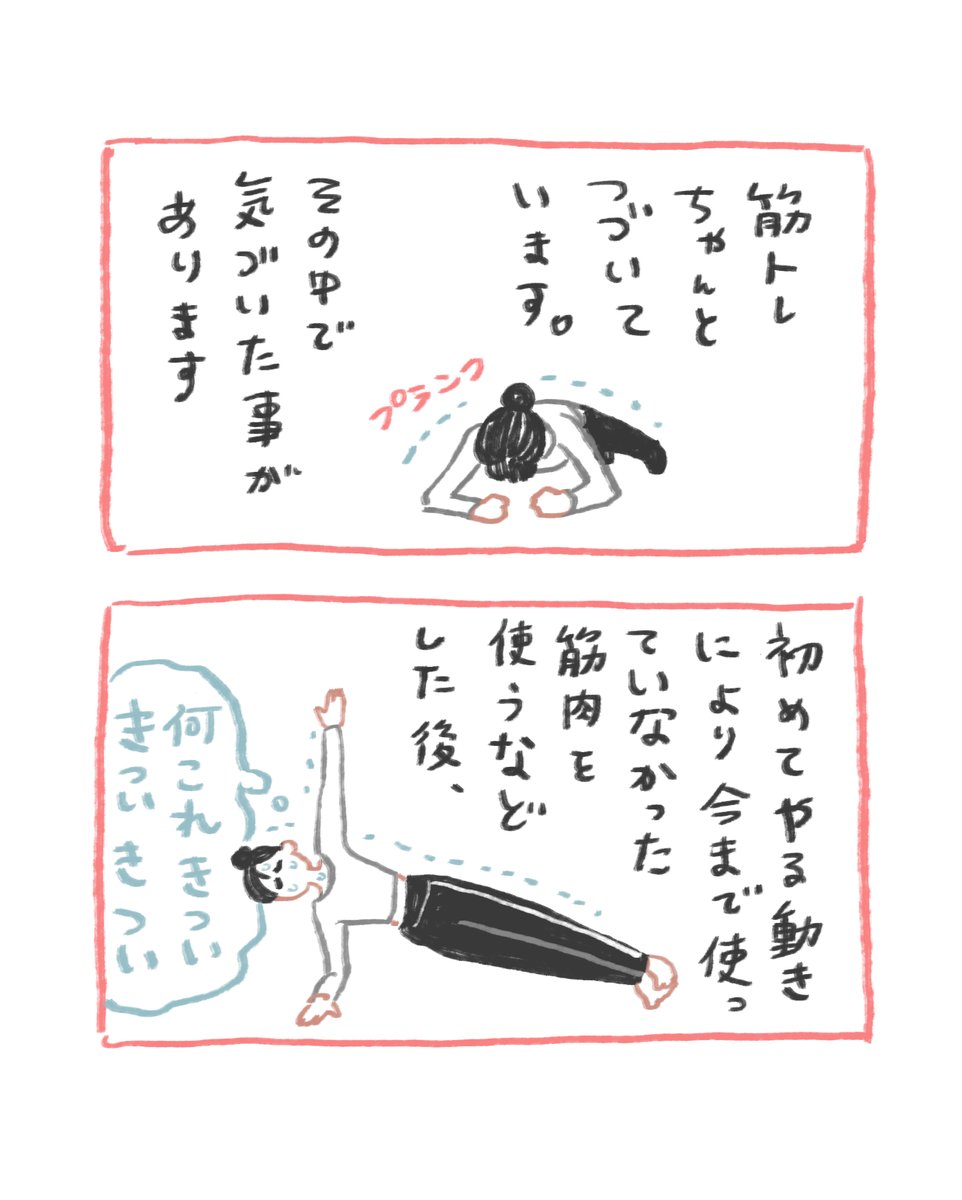 筋トレ
ちゃんと
つづいて
います。
その中で
気づいた事が
あります
プランク
初めてやる動き
により今まで使っ
ていなかった
筋肉を
使うなど
した後、
何これきつい
きついきつい